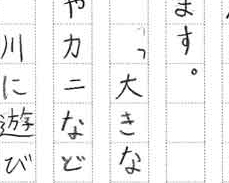 ます。
「大きな
やカニなど
川に遊び